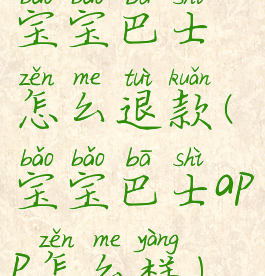 bǎo bǎo bā shì
宝宝巴士
zěn me tuì kuǎn
怎么退款(
bǎo bǎo bā shì
宝宝巴士ap
zěn me yàng
p怎么样)